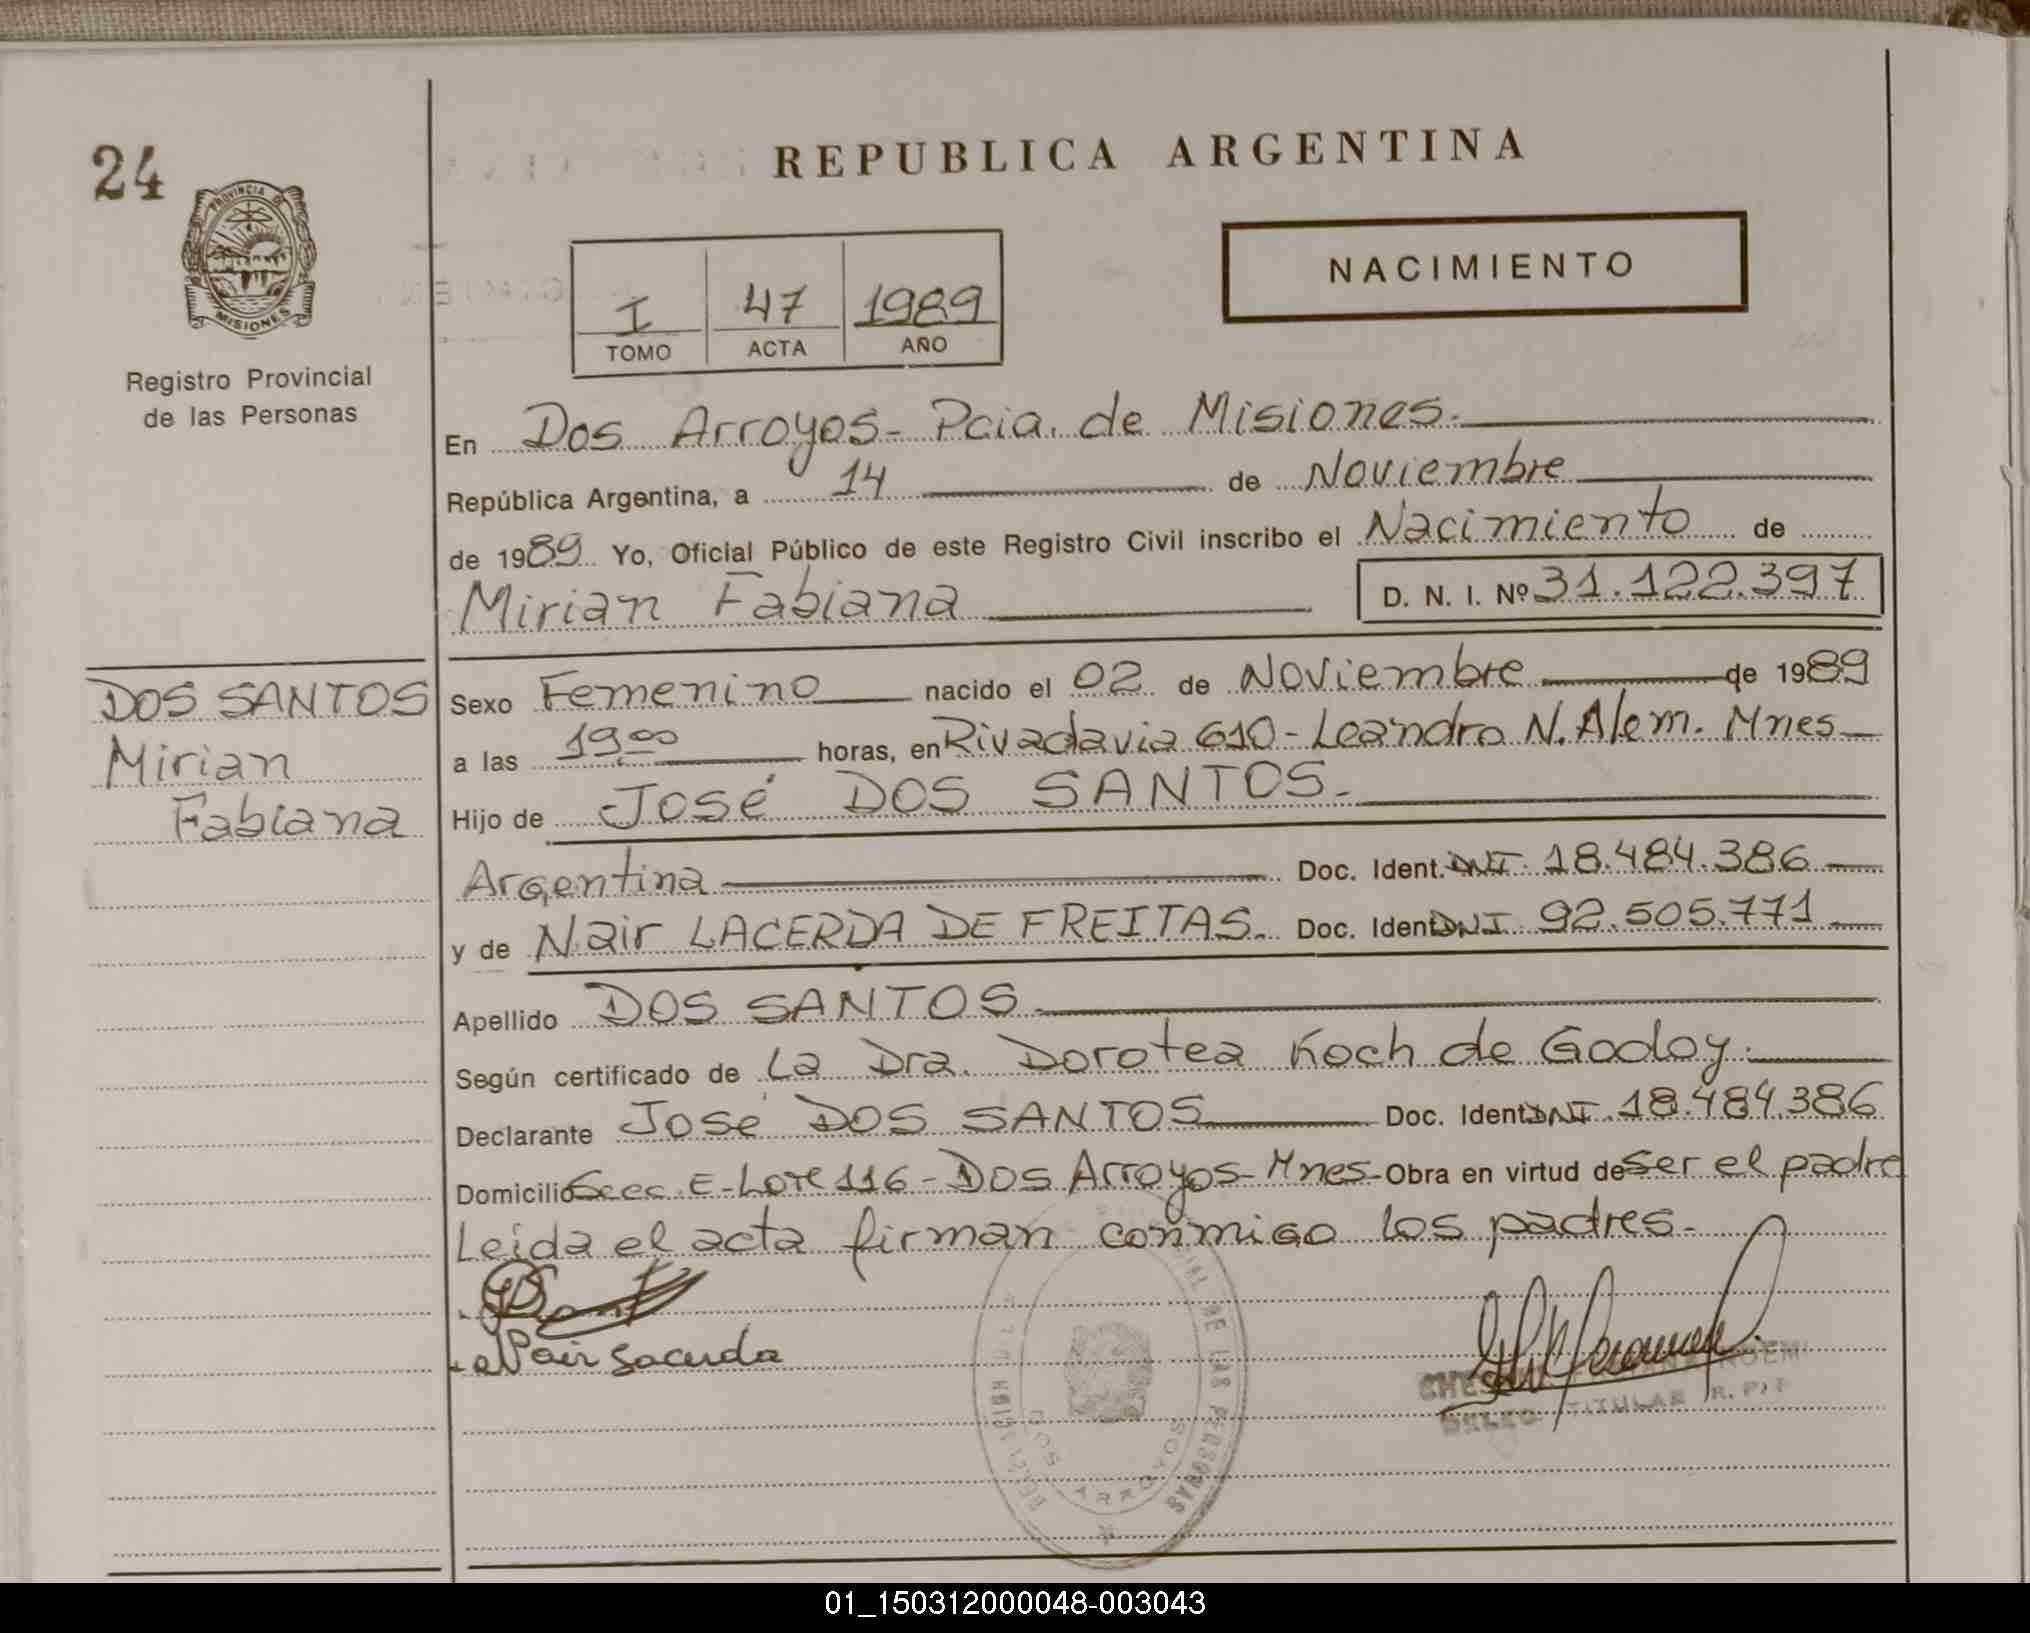 24
REPUBLICA ARGENTINA
PROVINCIA DE
MISIONES
Registro Provincial
de las Personas
I 47 1989
TOMO ACTA AÑO
NACIMIENTO
En Dos Arroyos - Pcia. de Misiones.
República Argentina, a 14 de Noviembre
de 1989 Yo, Oficial Público de este Registro Civil inscribo el Nacimiento de
Mirian Fabiana D. N. I. Nº 31.122.397
DOS SANTOS
Mirian
Fabiana
Sexo Femenino nacido el 02 de Noviembre de 1989
a las 19:00 horas, en Rivadavia 610 - Leandro N. Alem. Mnes
Hijo de José DOS SANTOS.
Argentina Doc. Ident. DNI 18.484.386
y de Nair LACERDA DE FREITAS. Doc. Ident DNI 92.505.771
Apellido DOS SANTOS
Según certificado de La Dra. Dorotea Koch de Godoy.
Declarante José DOS SANTOS Doc. Ident DNI 18.484.386
Domicilio Secc. E - Lote 116 - Dos Arroyos - Mnes - Obra en virtud de ser el padre
Leida el acta firman conmigo los padres.
Nair Lacerda
DE LAS PERSONAS
DOS ARROYOS
TITULAR R. P. P
01_150312000048-003043